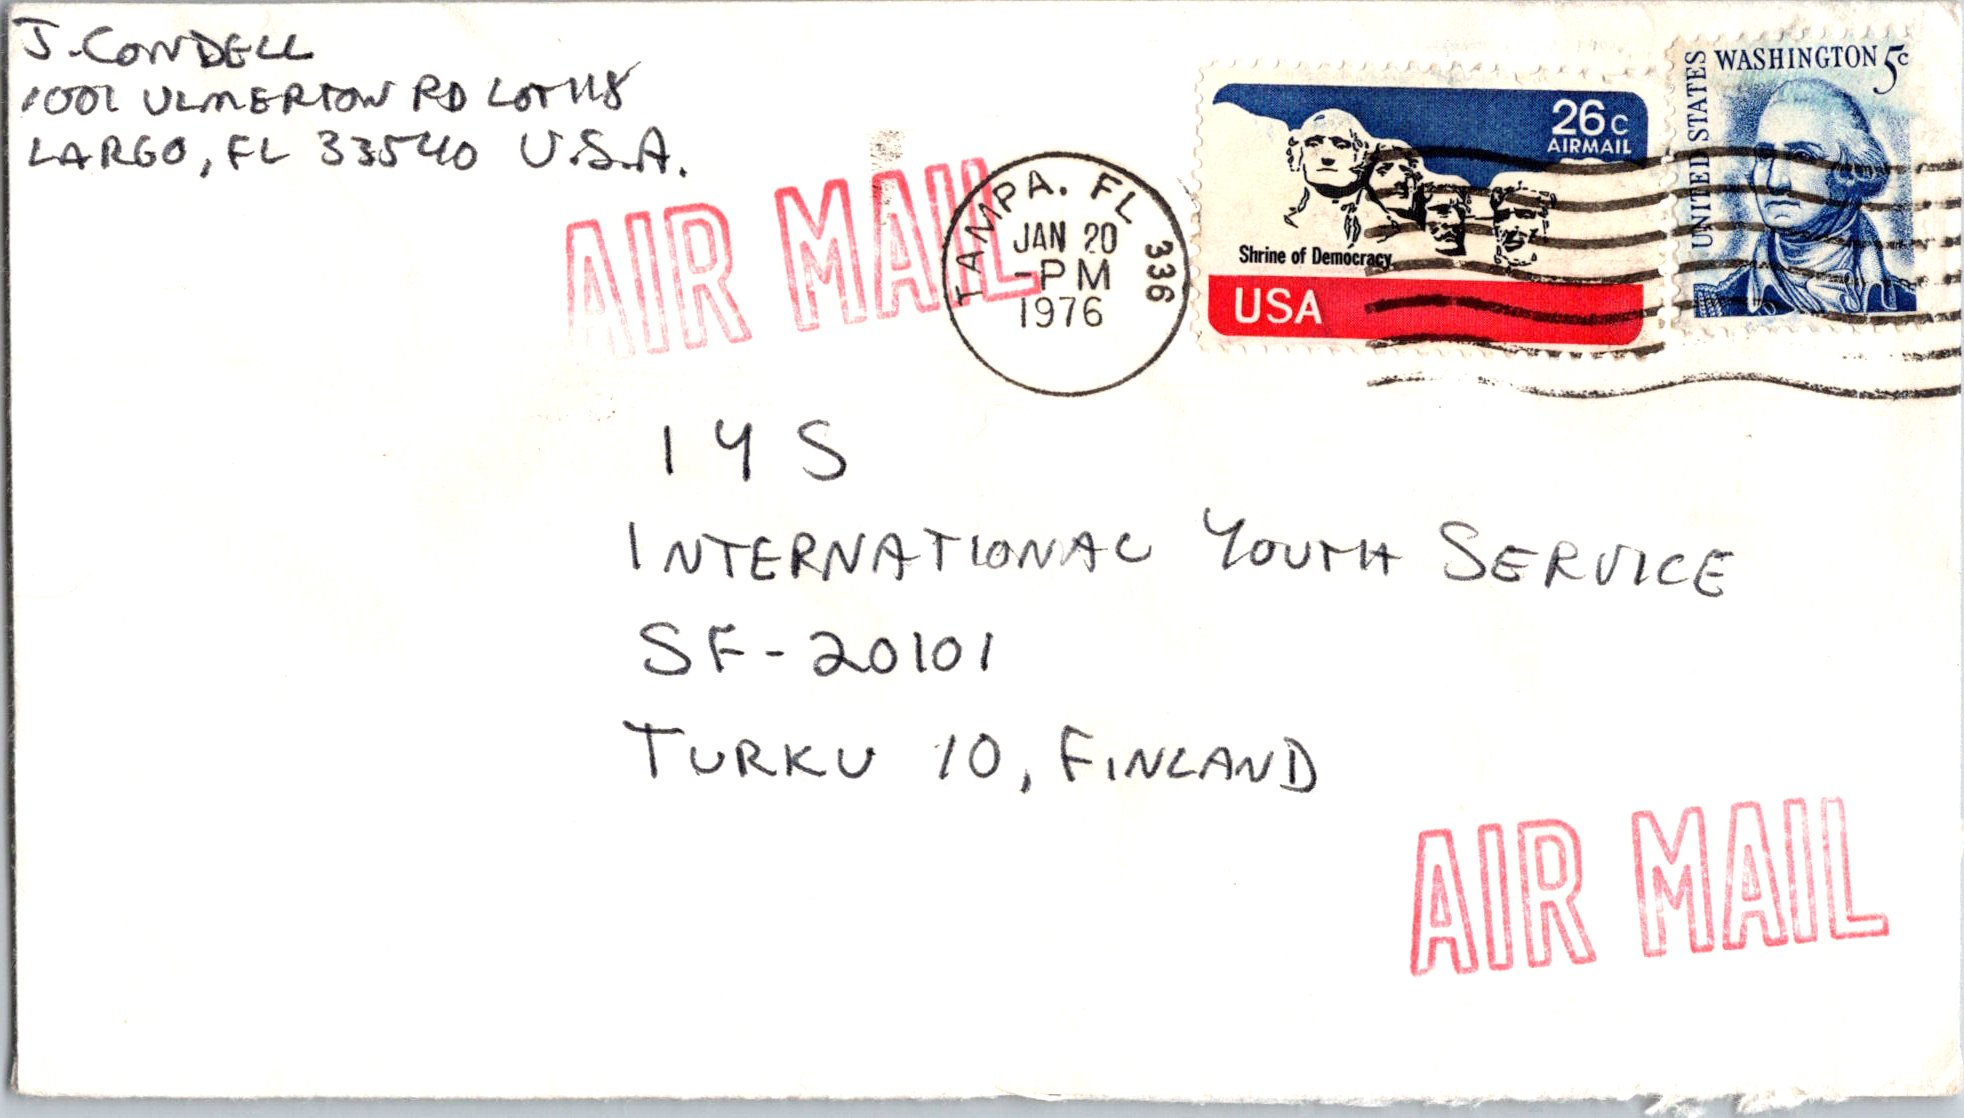 J. CONDELL
1001 ULMERTON RD LOT 118
LARGO, FL 33540 U.S.A.
AIR MAIL
TAMPA. FL 336
JAN 20
-PM
1976
26c
AIRMAIL
Shrine of Democracy
USA
UNITED STATES
WASHINGTON 5c
IYS
INTERNATIONAL YOUTH SERVICE
SF-20101
TURKU 10, FINLAND
AIR MAIL